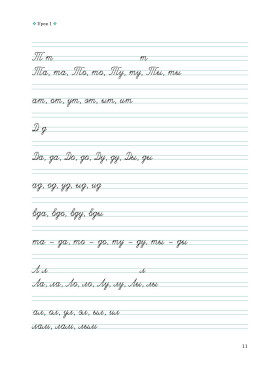 Урок 1
Т т т
Та, та, То, то, Ту, ту, Ты, ты
ат, от, ут, эт, ыт, ит
Д д
Да, да, До, до, Ду, ду, Ды, ды
ад, од, уд, ыд, ид
вда, вдо, вду, вды
та – да, то – до, ту – ду, ты – ды
Л л л
Ла, ла, Ло, ло, Лу, лу, Лы, лы
ал, ол, ул, эл, ыл, ил
лам, лам, лым
11